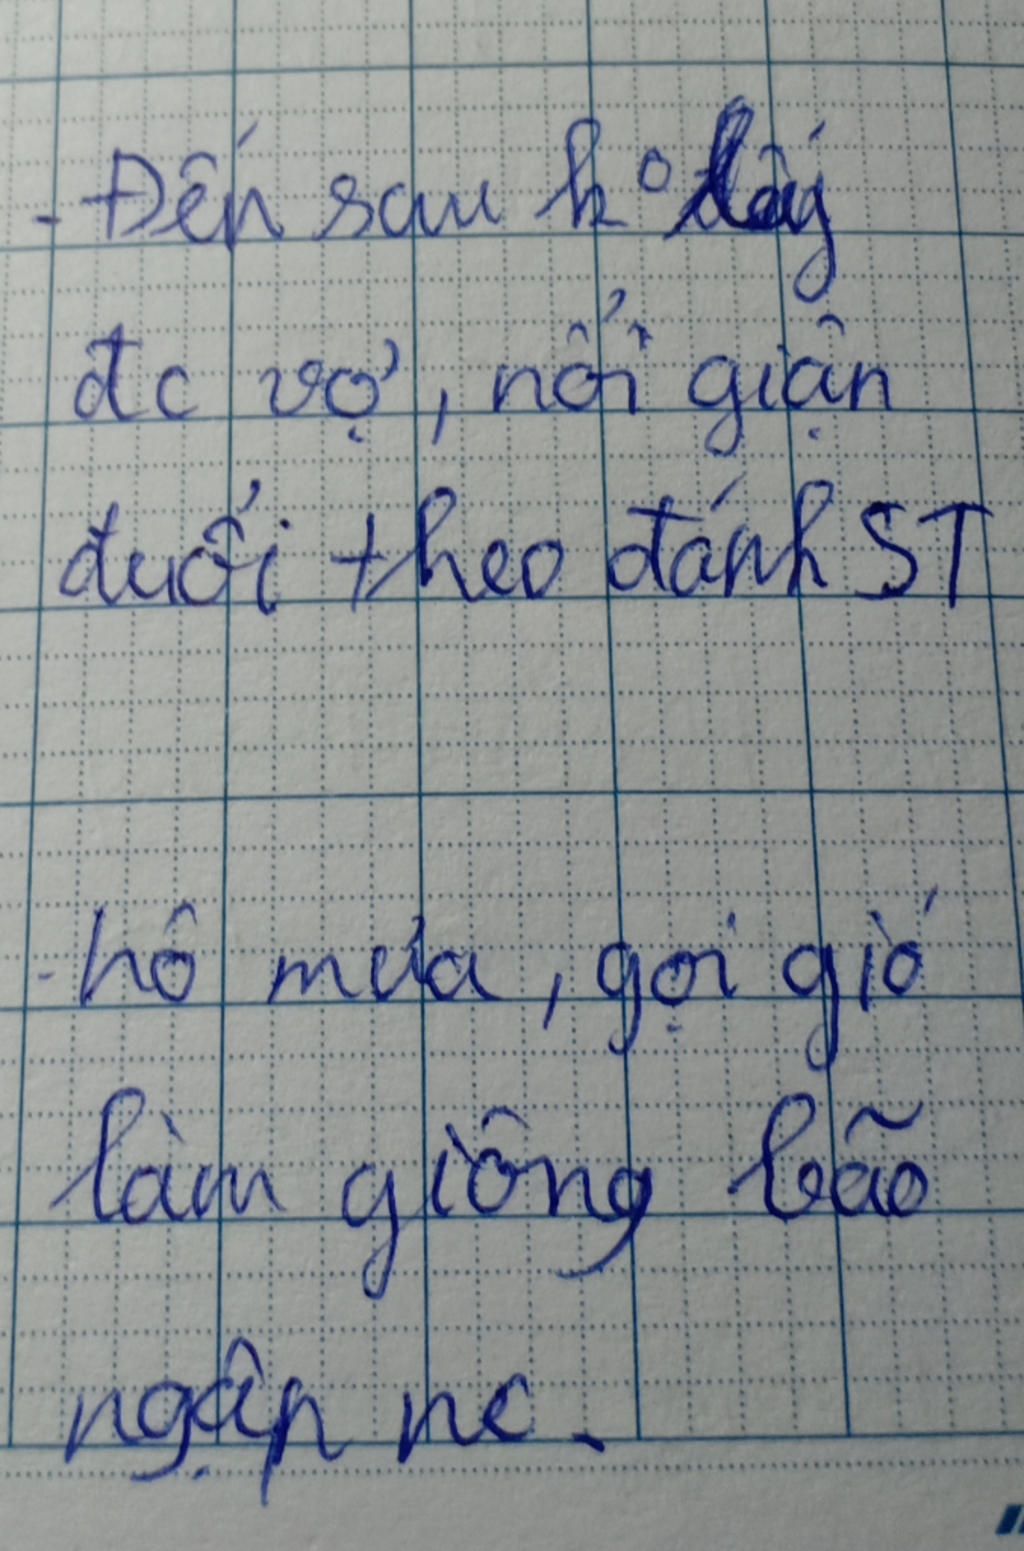 - Đến sau k° lấy
đc vợ, nổi giận
đuổi theo đánh ST
- hô mưa, gọi gió
làm giông bão
ngập nc.